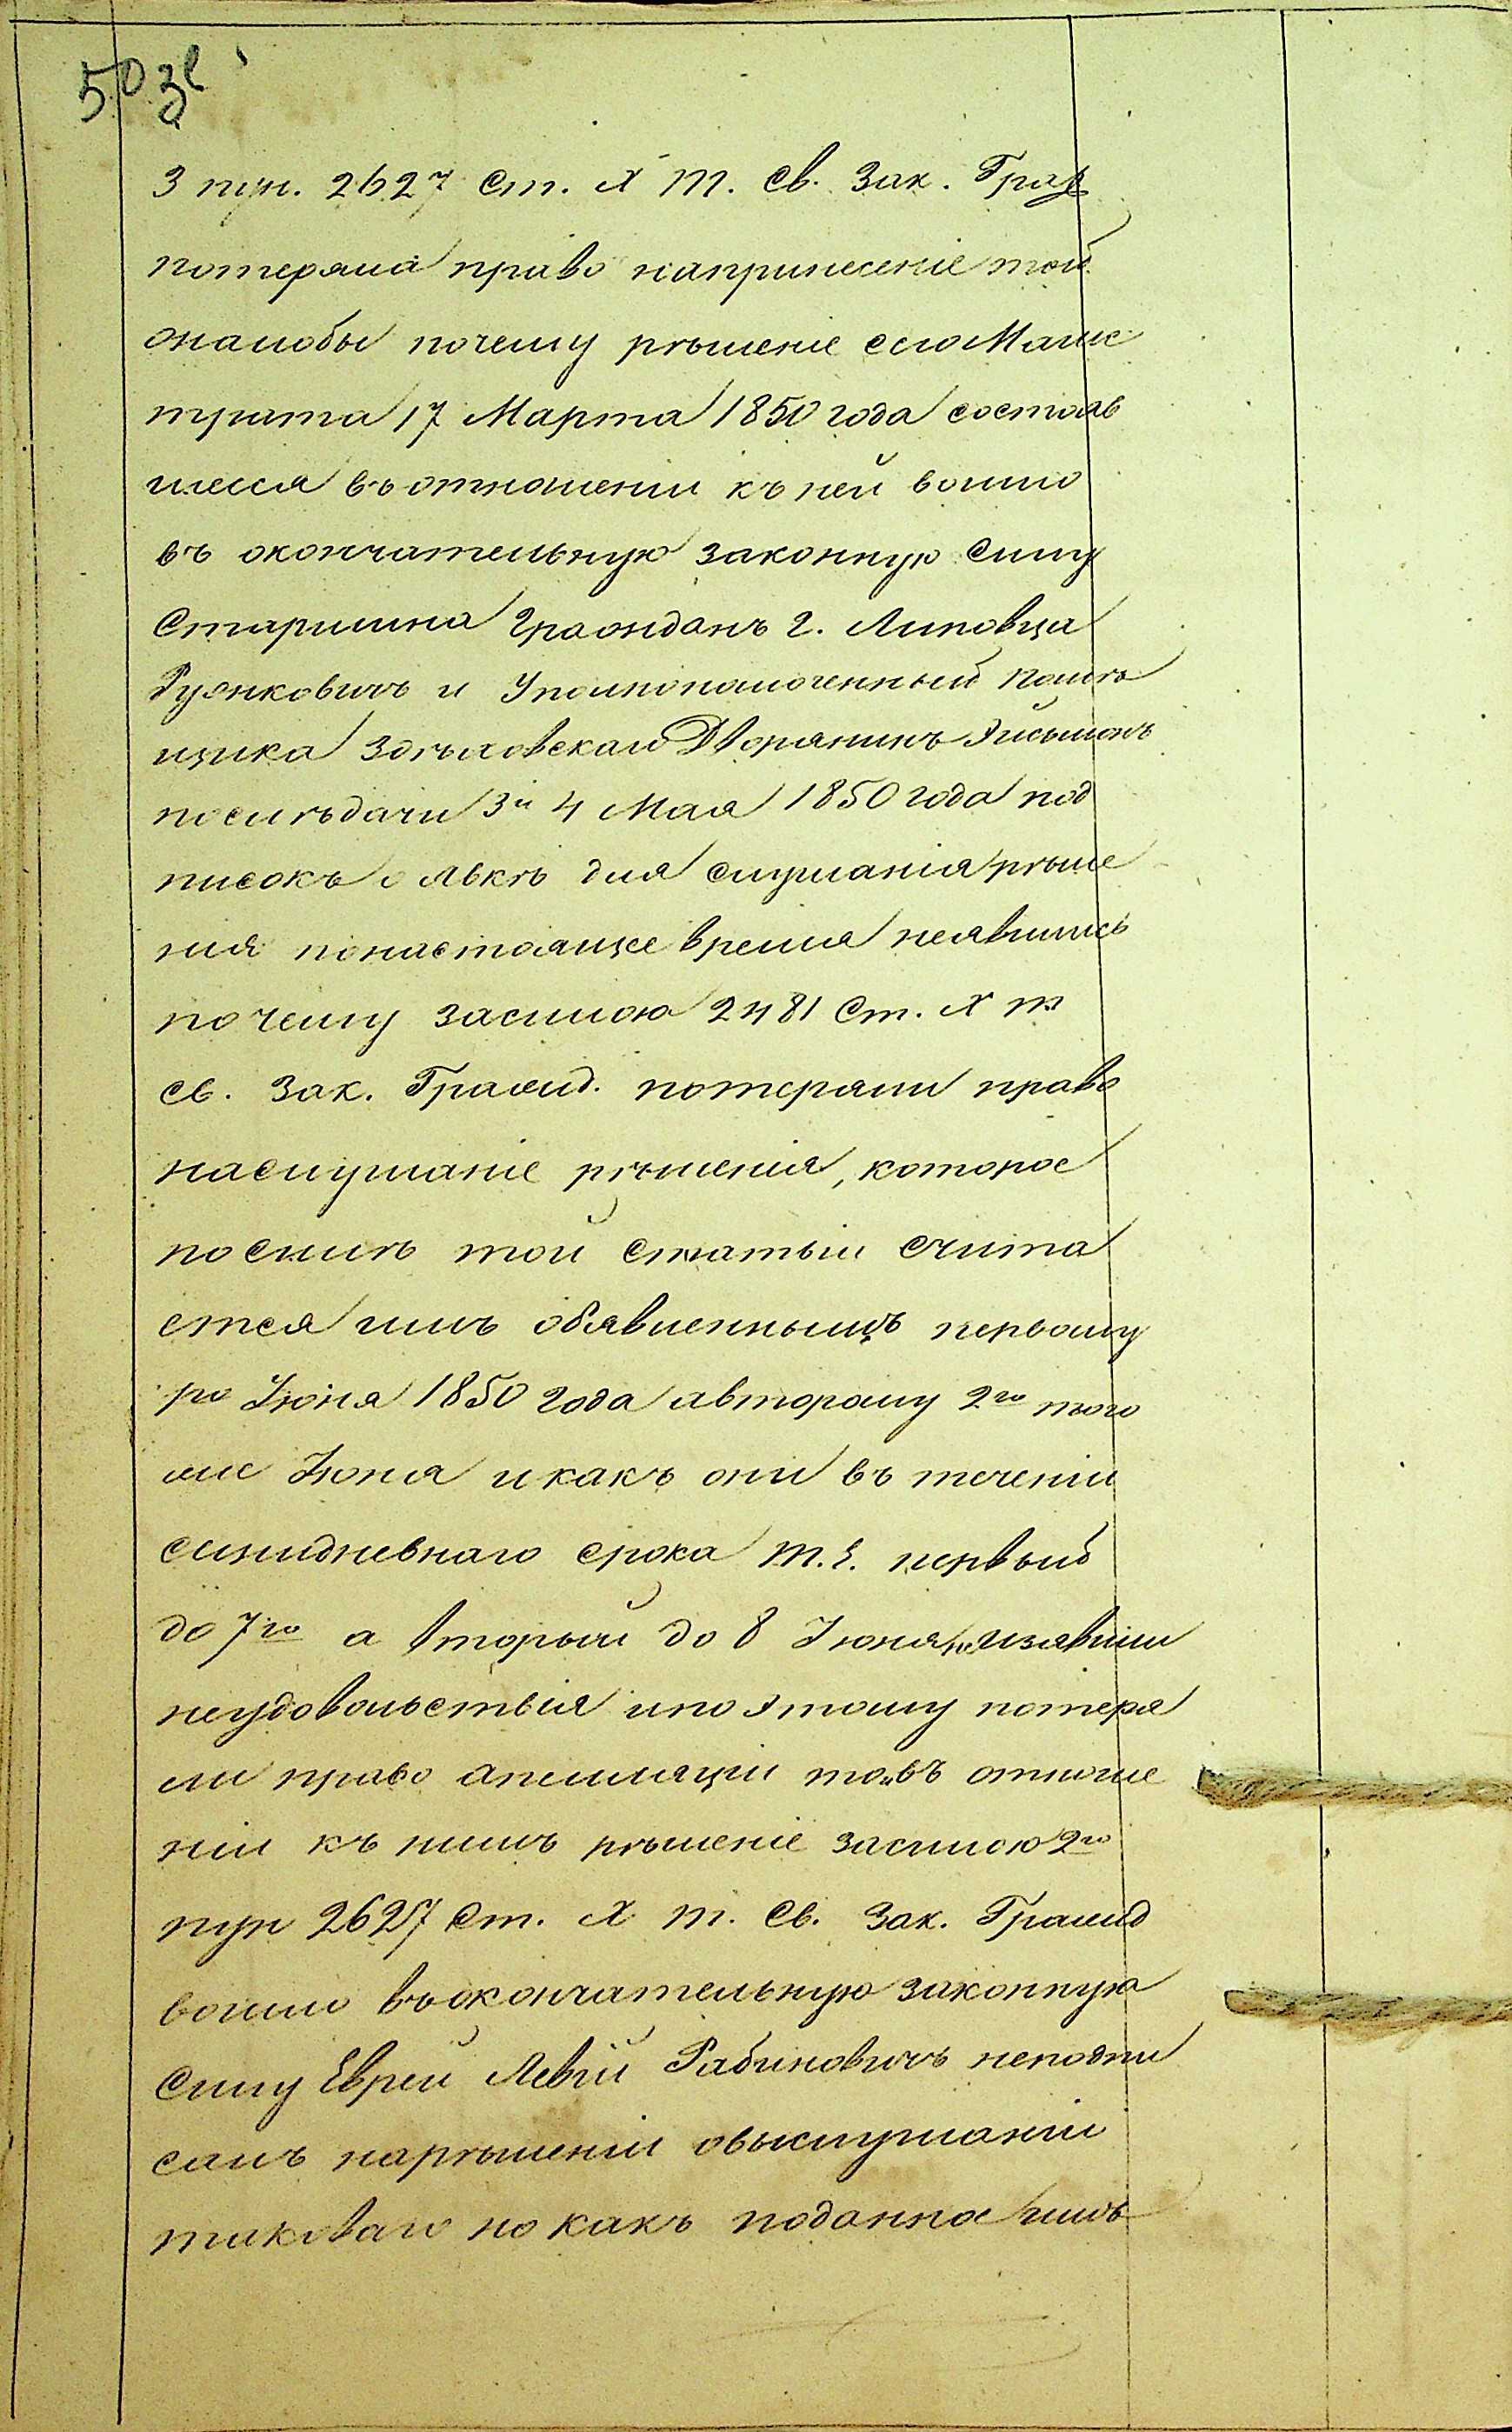 50 зв
3 пун. 2627 Ст. X Т. Св. Зак. Граж
потеряла право напринесеніе той
жалобы почему рѣшеніе сего Магис
трата 17 Марта 1850 года состояв
шееся въ отношеніи къ ней вошло
въ окончательную законную силу
Старшина Гражданъ г. Липовца
и Уполнополоченный помѣ
щика Дворянинъ
послѣ дачи 3 и 4 Мая 1850 года под
писокъ о явкѣ для слушанія рѣше
нія понастоящее время неявились
по чему засилою 2481 Ст. X т
Св. Зак. Гражд. потеряли право
наслушаніе рѣшенія, которое
по силѣ той статьи счита
ется имъ обявленнымъ первому
1го Іюня 1850 года авторому 2го того
же Іюня и какъ они въ теченіи
семидневнаго срока т. е. первый
до 7го а вторый до 8 Іюня не изявили
неудовольствія ипоэтому потеря
ли право апелляціи то въ отноше
ніи къ нимъ рѣшеніе засилою 2го
пун 2627 Ст. X Т. Св. Зак. Гражд
вошло въокончательную законную
силу Еврей Левій Рабиновичъ неподпи
салъ нарѣшеніи овыслушаніи
таковаго но какъ поданна имъ